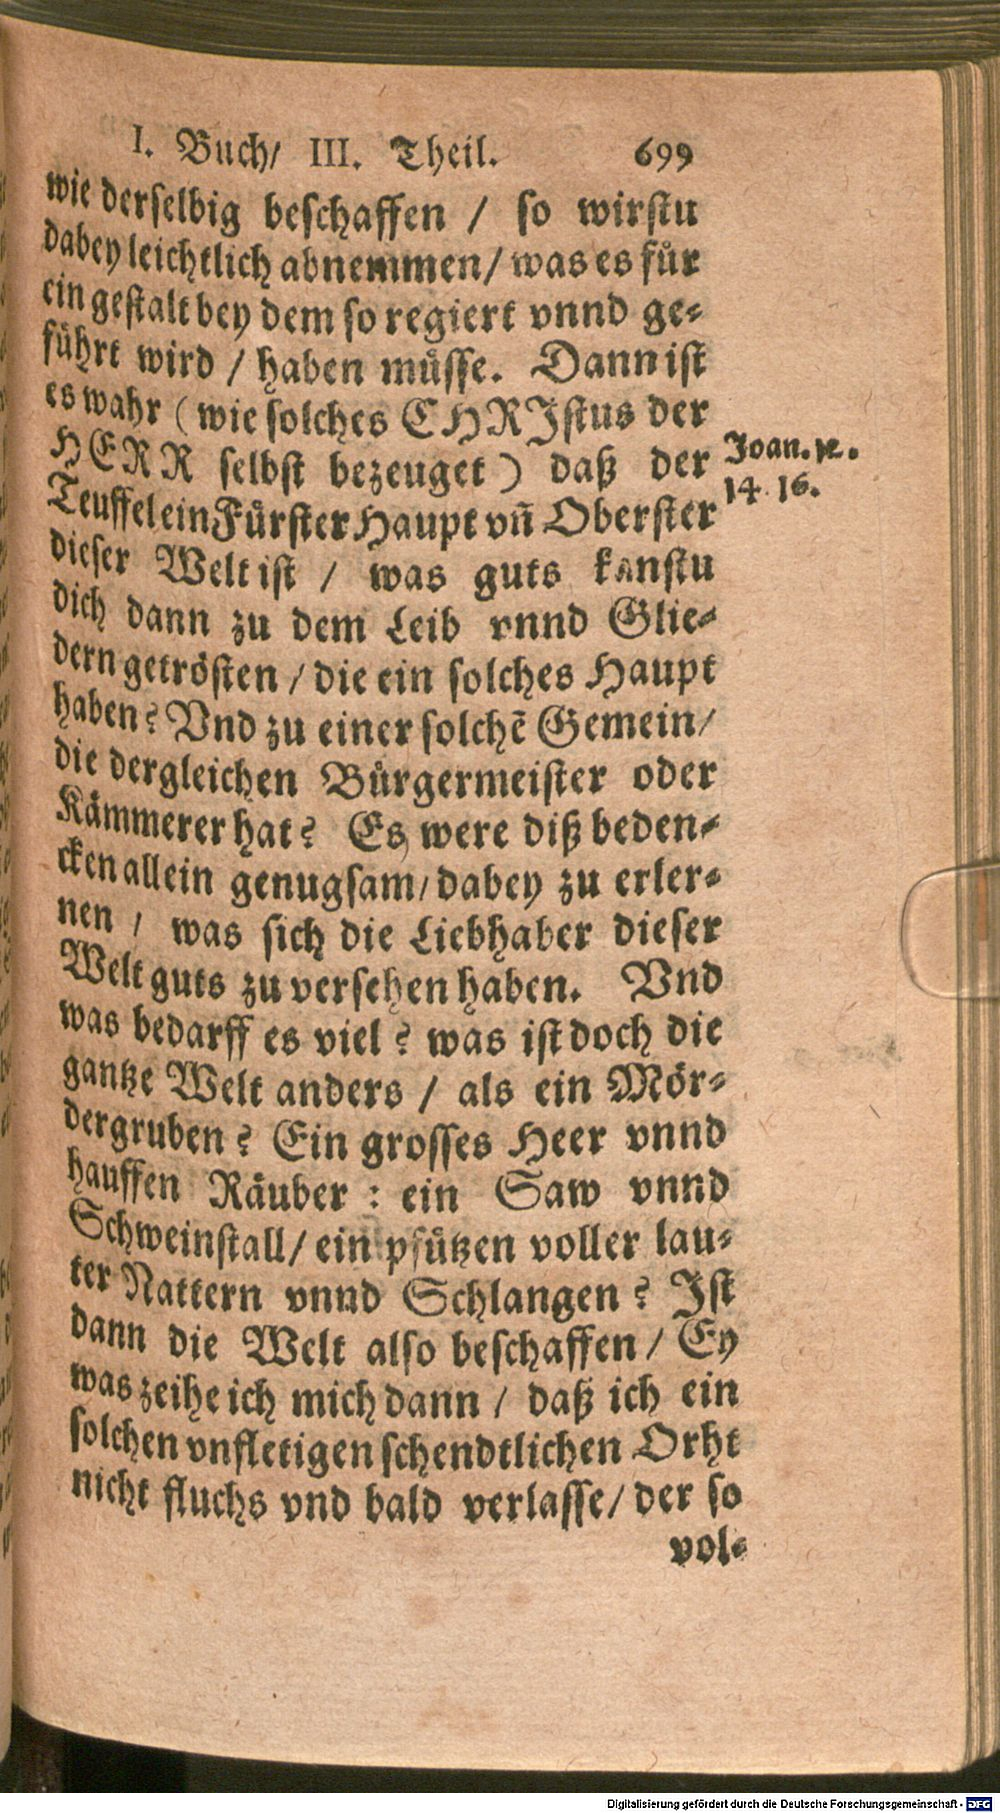 I. Buch/ III. Theil. 699
wie derselbig beschaffen / so wirstu
dabey leichtlich abnemmen/ was es fůr
ein gestalt bey dem so regiert vnnd ge-
fůhrt wird / haben můsse. Dann ist
es wahr (wie solches CHRIstus der
HERR selbst bezeuget) daß der
Teuffel ein Fůrster Haupt vñ Oberster
dieser Welt ist / was guts kanstu
dich dann zu dem Leib vnnd Glie-
dern getrösten / die ein solches Haupt
haben? Vnd zu einer solchē Gemein/
die dergleichen Bůrgermeister oder
Kämmerer hat? Es were diß beden-
cken allein genugsam/ dabey zu erler-
nen / was sich die Liebhaber dieser
Welt guts zu versehen haben. Vnd
was bedarff es viel? was ist doch die
gantze Welt anders / als ein Mör-
dergruben? Ein grosses Heer vnnd
hauffen Räuber : ein Saw vnnd
Schweinstall/ ein pfůtzen voller lau-
ter Nattern vnnd Schlangen? Ist
dann die Welt also beschaffen / Ey
was zeihe ich mich dann / daß ich ein
solchen vnfletigen schendtlichen Orht
nicht fluchs vnd bald verlasse/ der so
vol-
Joan.
14. 16.
Digitalisierung gefördert durch die Deutsche Forschungsgemeinschaft - DFG